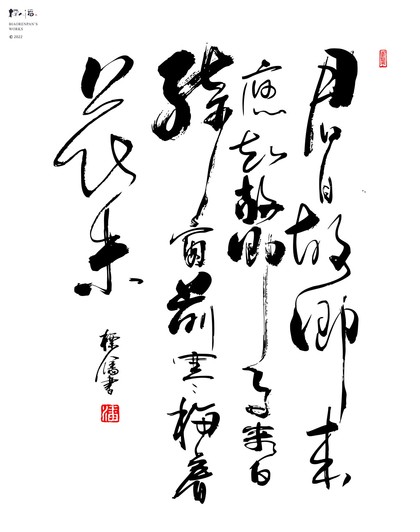 BIAORENPAN'S
WORKS
© 2022
君自故鄉來
應知故鄉事來日
綺窗前寒梅著
花未